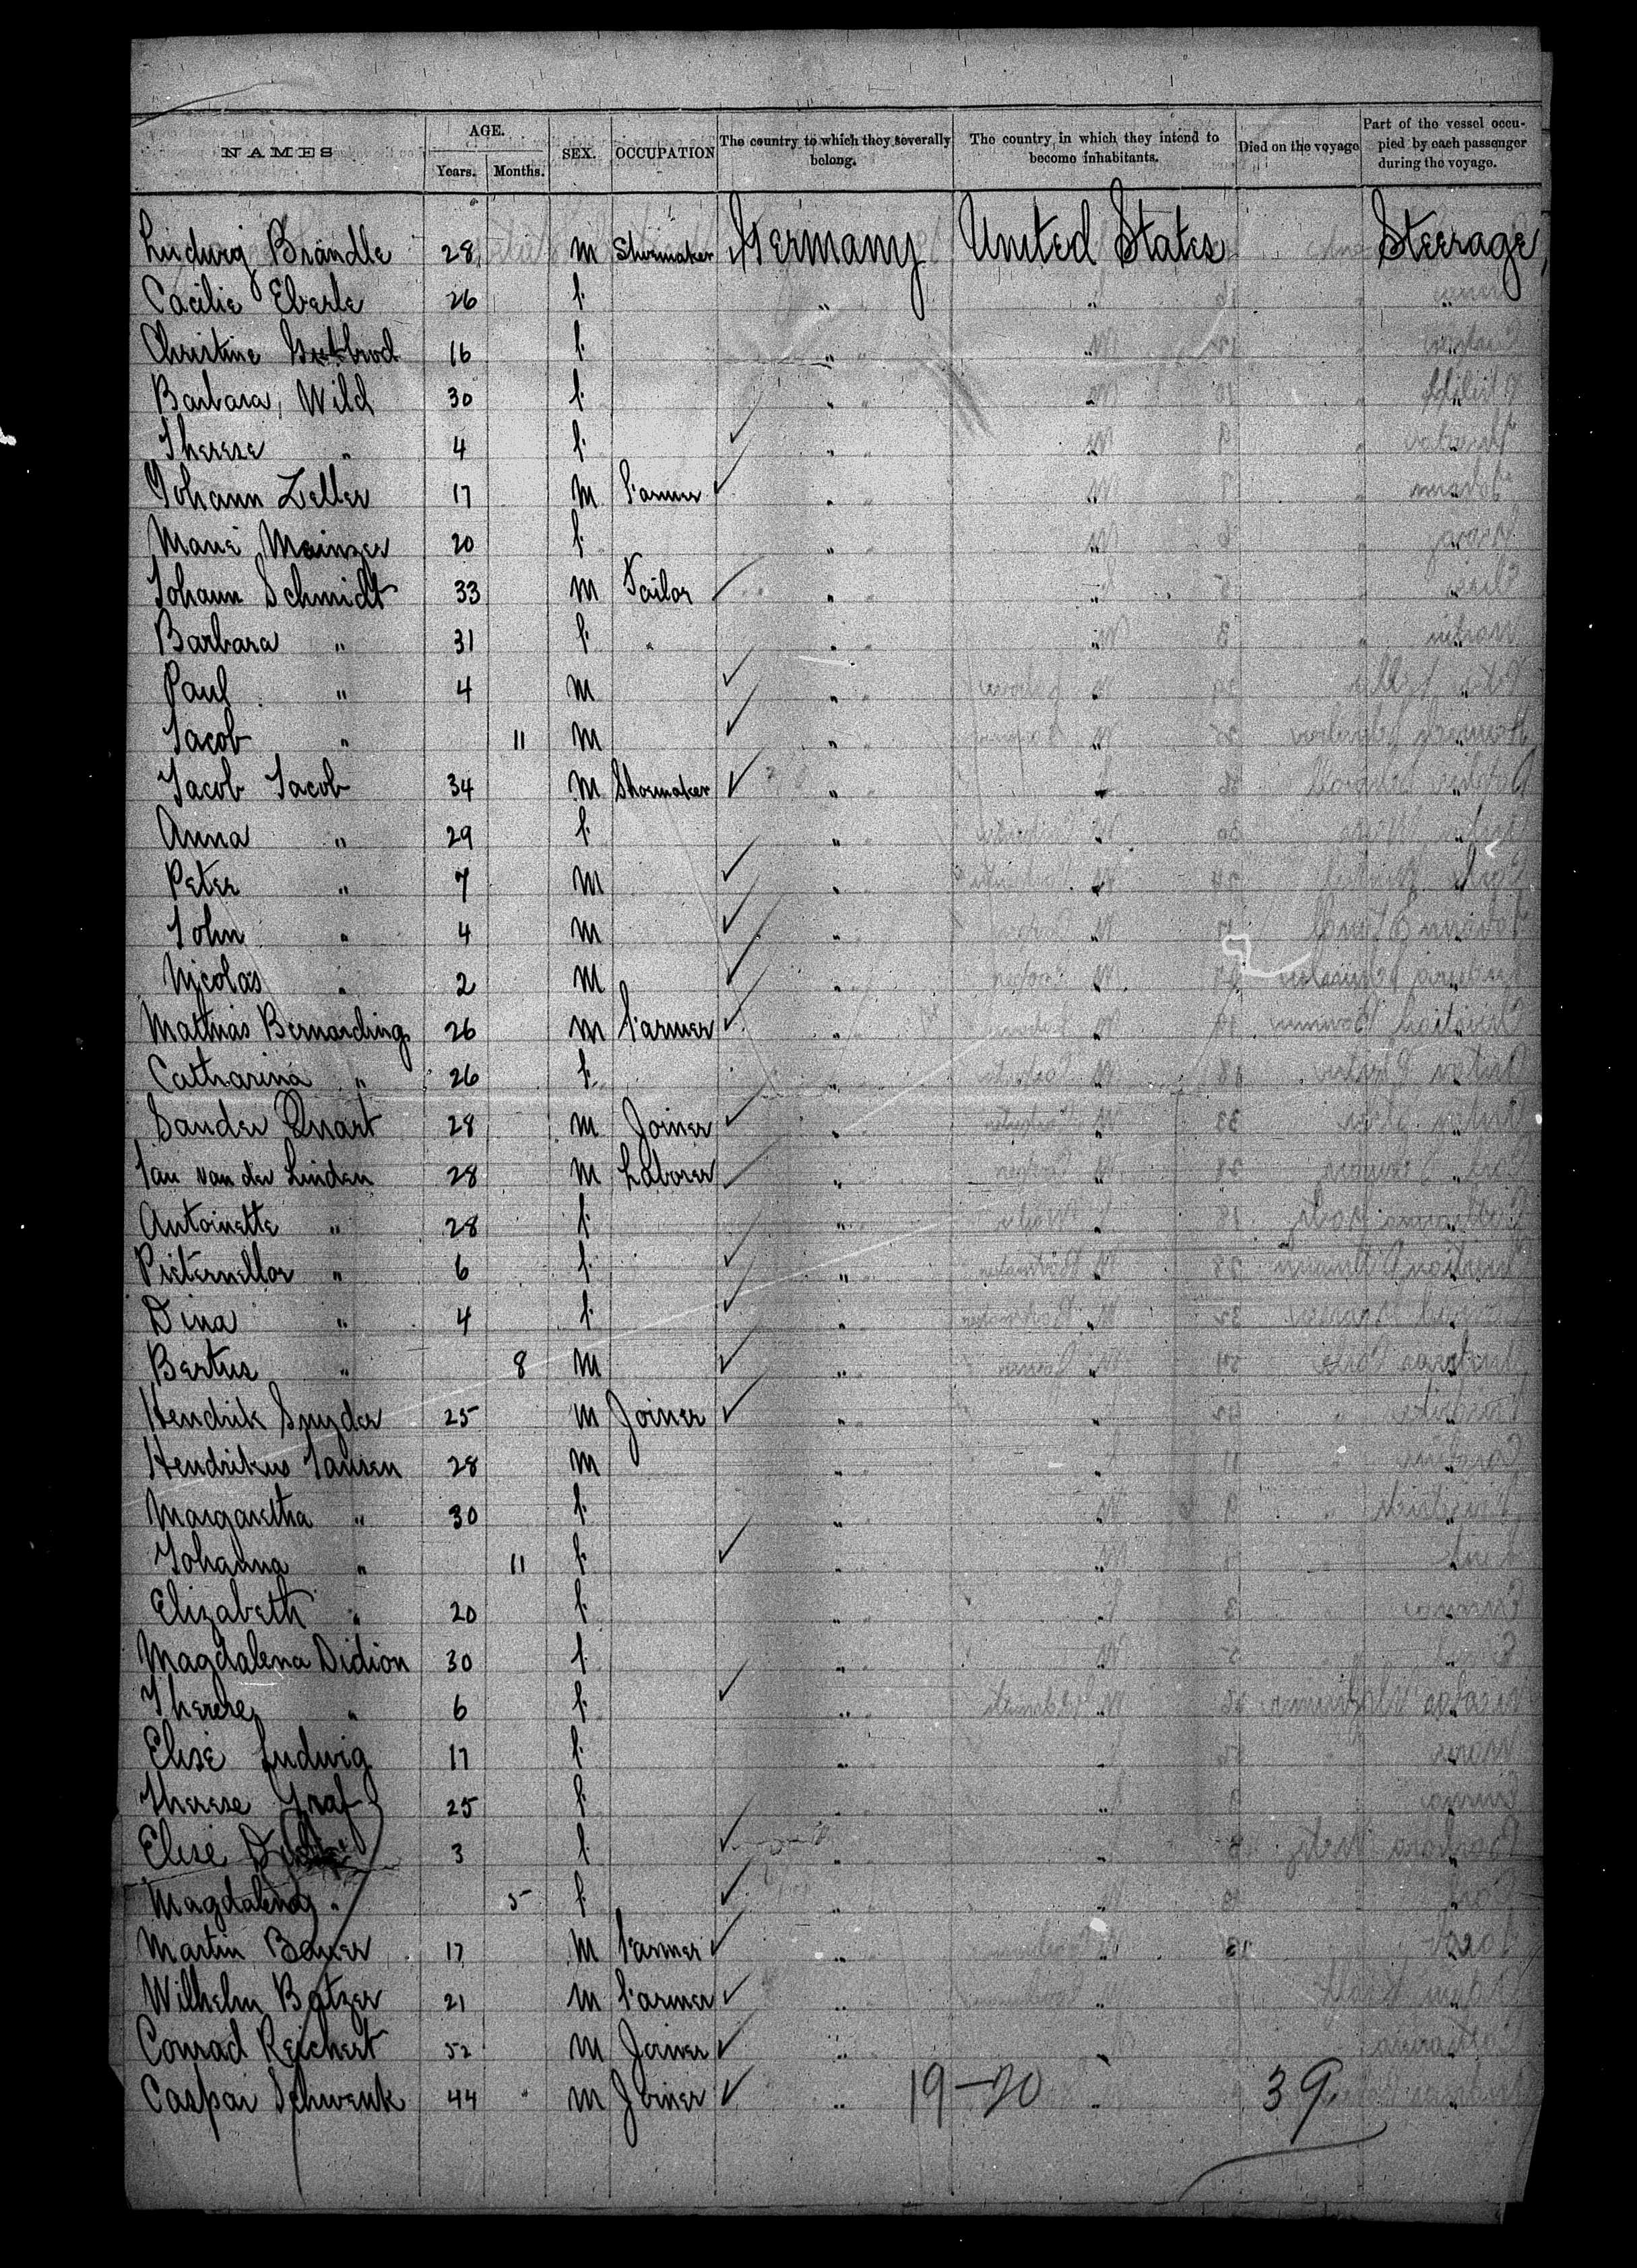 NAMES AGE. Years. Months. SEX. OCCUPATION The country to which they severally belong. The country in which they intend to become inhabitants. Died on the voyage Part of the vessel occupied by each passenger during the voyage.
Ludwig Brändle 28 M Shoemaker Germany United States Steerage
Cacilie Eberle 26 f. " " "
Christine Gutbrod 16 f. " " "
Barbara Wild 30 f. " " "
Therese " 4 f. " " "
Johann Zeller 17 M Farmer " " "
Marie Mainzer 20 f. " " "
Johann Schmidt 33 M Tailor " " "
Barbara " 31 f. " " " "
Paul " 4 M " " "
Jacob " 11 M " " "
Jacob Jacob 34 M Shoemaker " " "
Anna " 29 f. " " "
Peter " 7 M " " "
John " 4 M " " "
Nicolas " 2 M " " "
Mathias Bernarding 26 M Farmer " " "
Catharina " 26 f. " " "
Sander Quart 28 M Joiner " " "
Jan van der Linden 28 M Laborer " " "
Antoinette " 28 f. " " "
Pieternella " 6 f. " " "
Dina " 4 f. " " "
Bertus " 8 M " " "
Hendrik Snyder 25 M Joiner " " "
Hendrikus Jansen 28 M " " "
Margaretha " 30 f. " " "
Johanna " 11 f. " " "
Elizabeth " 20 f. " " "
Magdalena Didion 30 f. " " "
Therese " 6 f. " " "
Elise Ludwig 17 f. " " "
Therese Graf 25 f. " " "
Elise 3 f. " " "
Magdalena " 5 f. " " "
Martin Bauer 17 M Farmer " " "
Wilhelm Batzer 21 M Farmer " " "
Conrad Reichert 52 M Joiner " " "
Caspar Schwenk 44 " M Joiner " 19-20 " 39 "